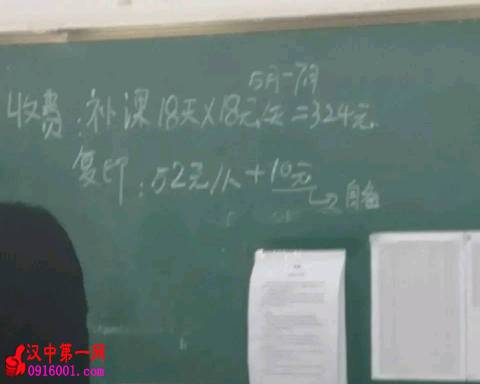 5月-7月
收费:补课18天×18元/天=324元
复印:52元/人+10元
汉中第一网
0916001.com